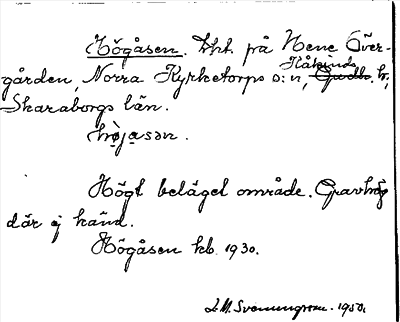 Högåsen. Tht. på Nene Över-
gården, Norra Kyrketorps s:n, Kåkinds h,
Skaraborgs län.
högåsən.
Högt beläget område. Gravhög
där ej känd.
Högåsen kb. 1930.
J.M. Svenungsson. 1950.